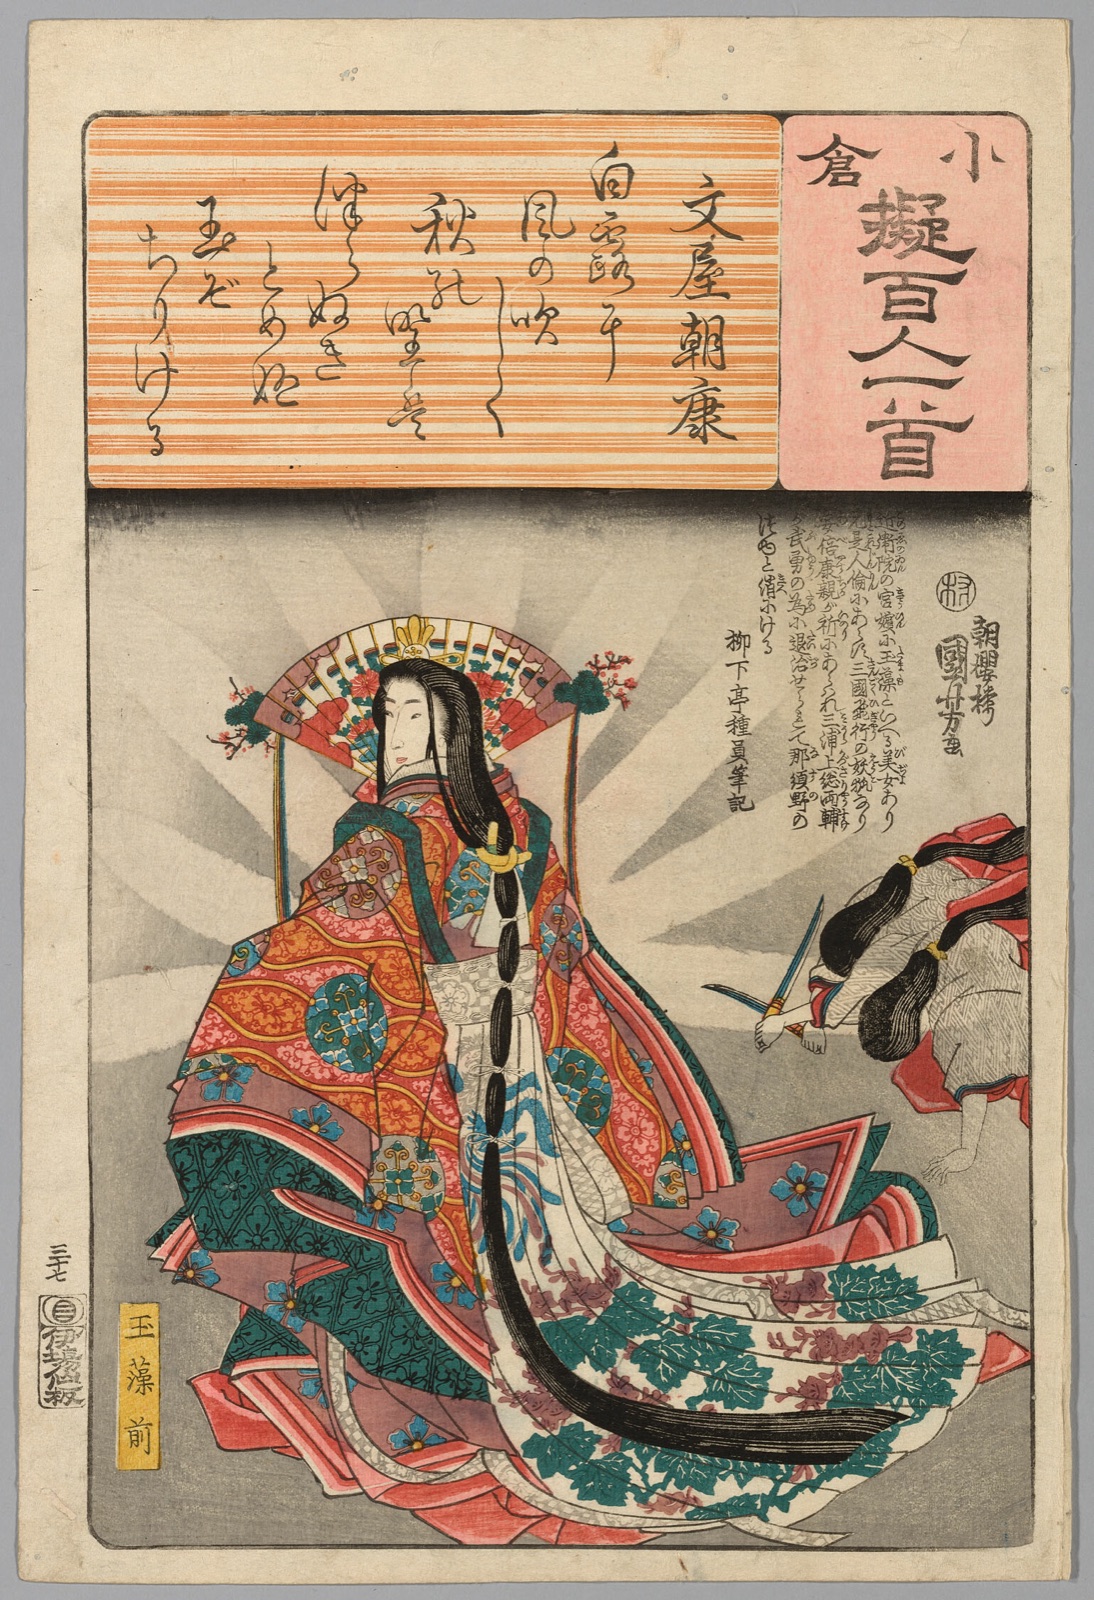 小倉
擬百人一首
文屋朝康
白露に
風の吹
しく
秋の
野は
つらぬき
とめぬ
玉ぞ
ちりける
近衛院の宮嬪に玉藻といへる美女あり
元是人倫にあらず三國飛行の妖狐なり
安倍康親が祈にあらはれ三浦上総両輔
が武勇の為に退治せられて那須野の
つゆと消にける
柳下亭種員筆記
村
朝櫻楼
國芳画
玉藻前
三十七
伊場仙板